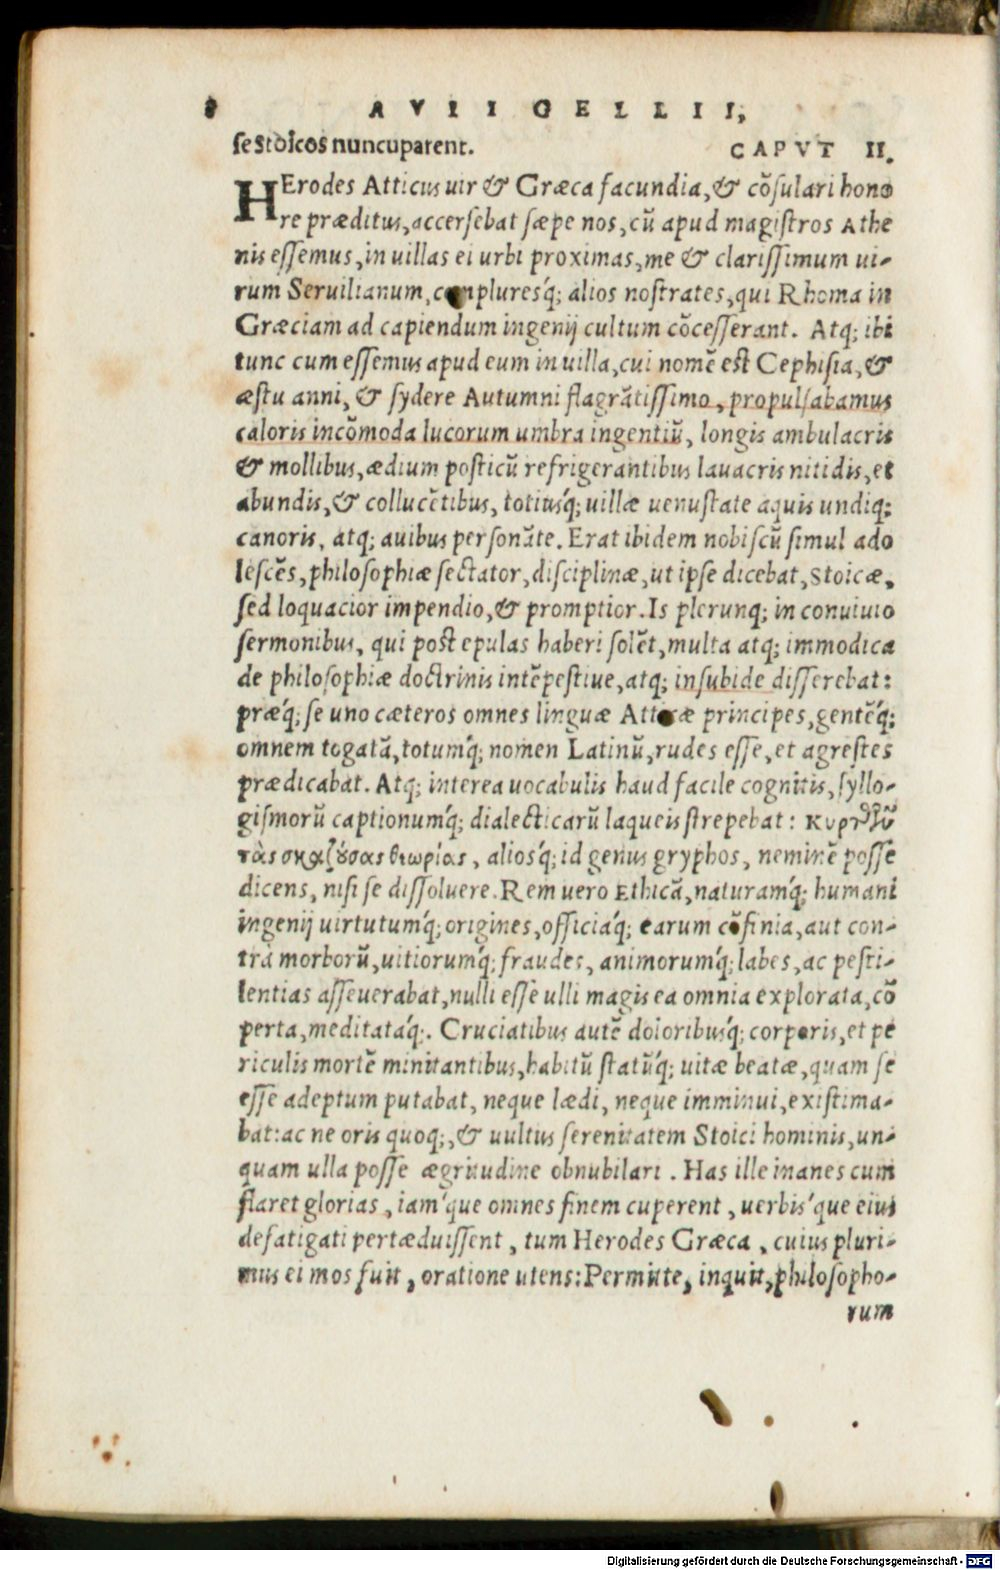 8 AVII GELLII,
se Stoicos nuncuparent. CAPVT II.
HErodes Atticus uir & Græca facundia, & cõsulari hono
re præditus, accersebat sæpe nos, cũ apud magistros Athe
nis essemus, in uillas ei urbi proximas, me & clarissimum ui-
rum Seruilianum, compluresq́; alios nostrates, qui Rhoma in
Græciam ad capiendum ingenij cultum cõcesserant. Atq; ibi
tunc cum essemus apud eum in uilla, cui nomẽ est Cephisia, &
æstu anni, & sydere Autumni flagrãtissimo, propulsabamus
caloris incõmoda lucorum umbra ingentiũ, longis ambulacris
& mollibus, ædium posticũ refrigerantibus lauacris nitidis, et
abundis, & collucẽtibus, totiusq́; uillæ uenustate aquis undiq;
canoris, atq; auibus personãte. Erat ibidem nobiscũ simul ado
lescẽs, philosophiæ sectator, disciplinæ, ut ipse dicebat, Stoicæ,
sed loquacior impendio, & promptior. Is plerunq; in conuiuio
sermonibus, qui post epulas haberi solẽt, multa atq; immodica
de philosophiæ doctrinis intẽpestiue, atq; insubide disserebat:
præq́; se uno cæteros omnes linguæ Atticæ principes, gentẽq́;
omnem togatã, totumq́; nomen Latinũ, rudes esse, et agrestes
prædicabat. Atq; interea uocabulis haud facile cognitis, syllo-
gismorũ captionumq́; dialecticarũ laqueis strepebat:
τὰς σκαζούσας θεωρίας, aliosq́; id genus gryphos, neminẽ posse
dicens, nisi se dissoluere. Rem uero Ethicã, naturamq́; humani
ingenij uirtutumq́; origines, officiaq́; earum cõfinia, aut con-
trà morborũ, uitiorumq́; fraudes, animorumq́; labes, ac pesti-
lentias asseuerabat, nulli esse ulli magis ea omnia explorata, cõ
perta, meditataq́;. Cruciatibus autẽ doloribusq́; corporis, et pe
riculis mortẽ minitantibus, habitũ statũq́; uitæ beatæ, quam se
esse adeptum putabat, neque lædi, neque imminui, existima-
bat: ac ne oris quoq;, & uultus serenitatem Stoici hominis, un-
quam ulla posse ægritudine obnubilari. Has ille inanes cum
flaret glorias, iam'que omnes finem cuperent, uerbis'que eius
defatigati pertæduissent, tum Herodes Græca, cuius pluri-
mus ei mos fuit, oratione utens: Permitte, inquit, philosopho-
rum
Digitalisierung gefördert durch die Deutsche Forschungsgemeinschaft - DFG